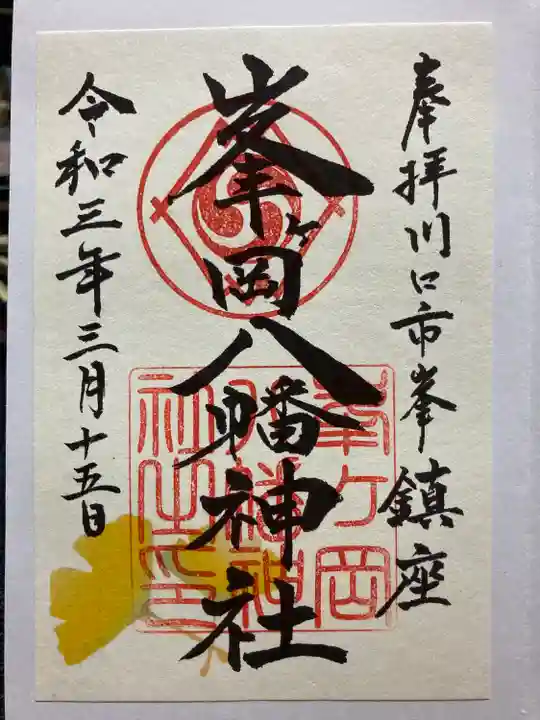 奉拝川口市峯鎮座
峯ヶ岡八幡神社
令和三年三月十五日
峯ヶ岡
八幡神
社之印